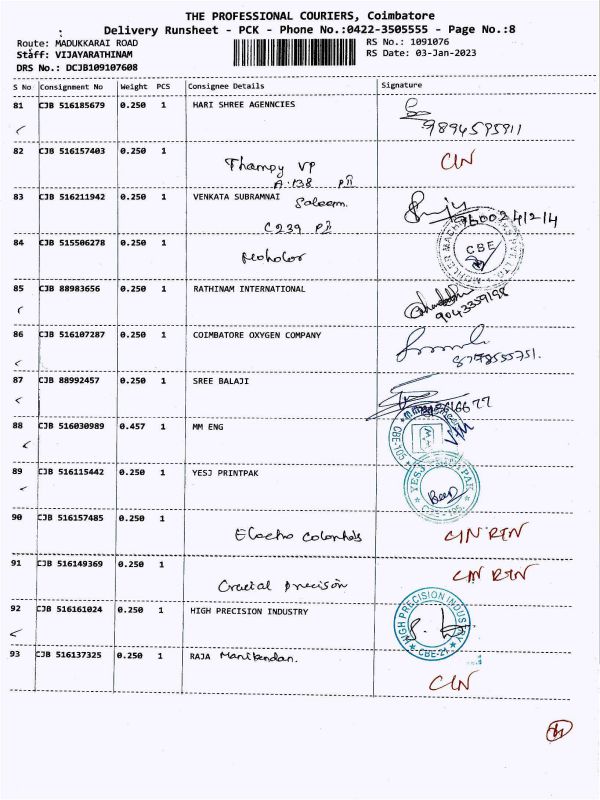 THE PROFESSIONAL COURIERS, Coimbatore
Delivery Runsheet - PCK - Phone No.:0422-3505555 - Page No.:8
Route: MADUKKARAI ROAD RS No.: 1091076
Staff: VIJAYARATHINAM RS Date: 03-Jan-2023
DRS No.: DCJB109107608
S No Consignment No Weight PCS Consignee Details Signature
81 CJB 516185679 0.250 1 HARI SHREE AGENNCIES
9894595911
82 CJB 516157403 0.250 1 CIN
Thampy VP
A-138
83 CJB 516211942 0.250 1 VENKATA SUBRAMNAI
Saleem
9600241214
C239
84 CJB 515506278 0.250 1
CBE
85 CJB 88983656 0.250 1 RATHINAM INTERNATIONAL
9043359198
86 CJB 516107287 0.250 1 COIMBATORE OXYGEN COMPANY
87 CJB 88992457 0.250 1 SREE BALAJI
88 CJB 516030989 0.457 1 MM ENG
89 CJB 516115442 0.250 1 YESJ PRINTPAK
90 CJB 516157485 0.250 1
CIN RTN
91 CJB 516149369 0.250 1 CIN RTN
Crucial precision
92 CJB 516161024 0.250 1 HIGH PRECISION INDUSTRY
HIGH PRECISION INDUSTRY
CBE-21
93 CJB 516137325 0.250 1 RAJA Manikandan.
CIN